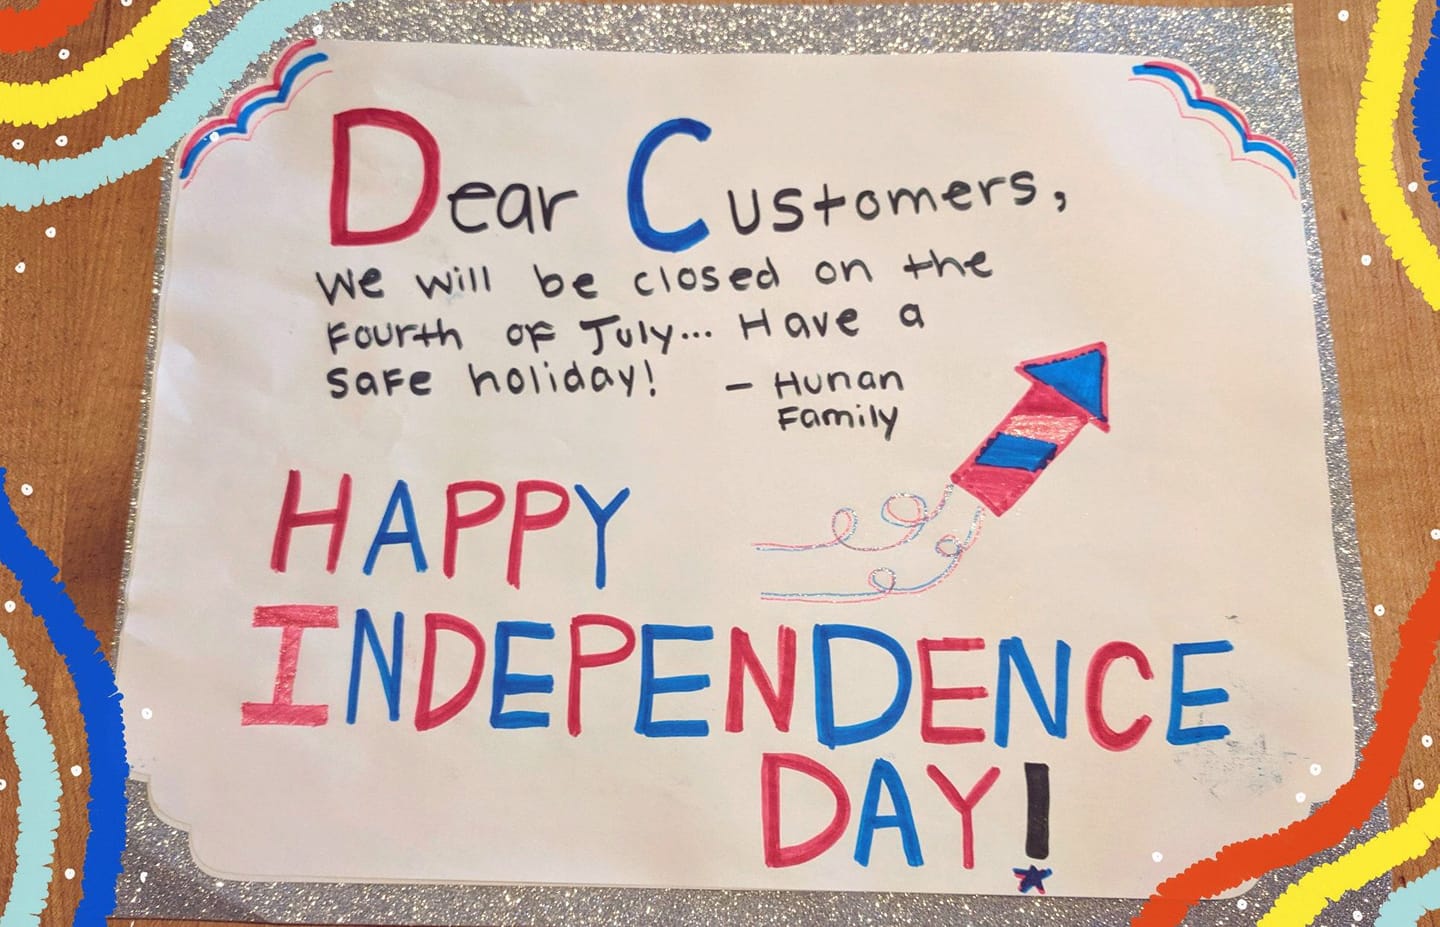 Dear Customers,
We will be closed on the
Fourth of July... Have a
safe holiday! - Hunan
Family
HAPPY
INDEPENDENCE
DAY!